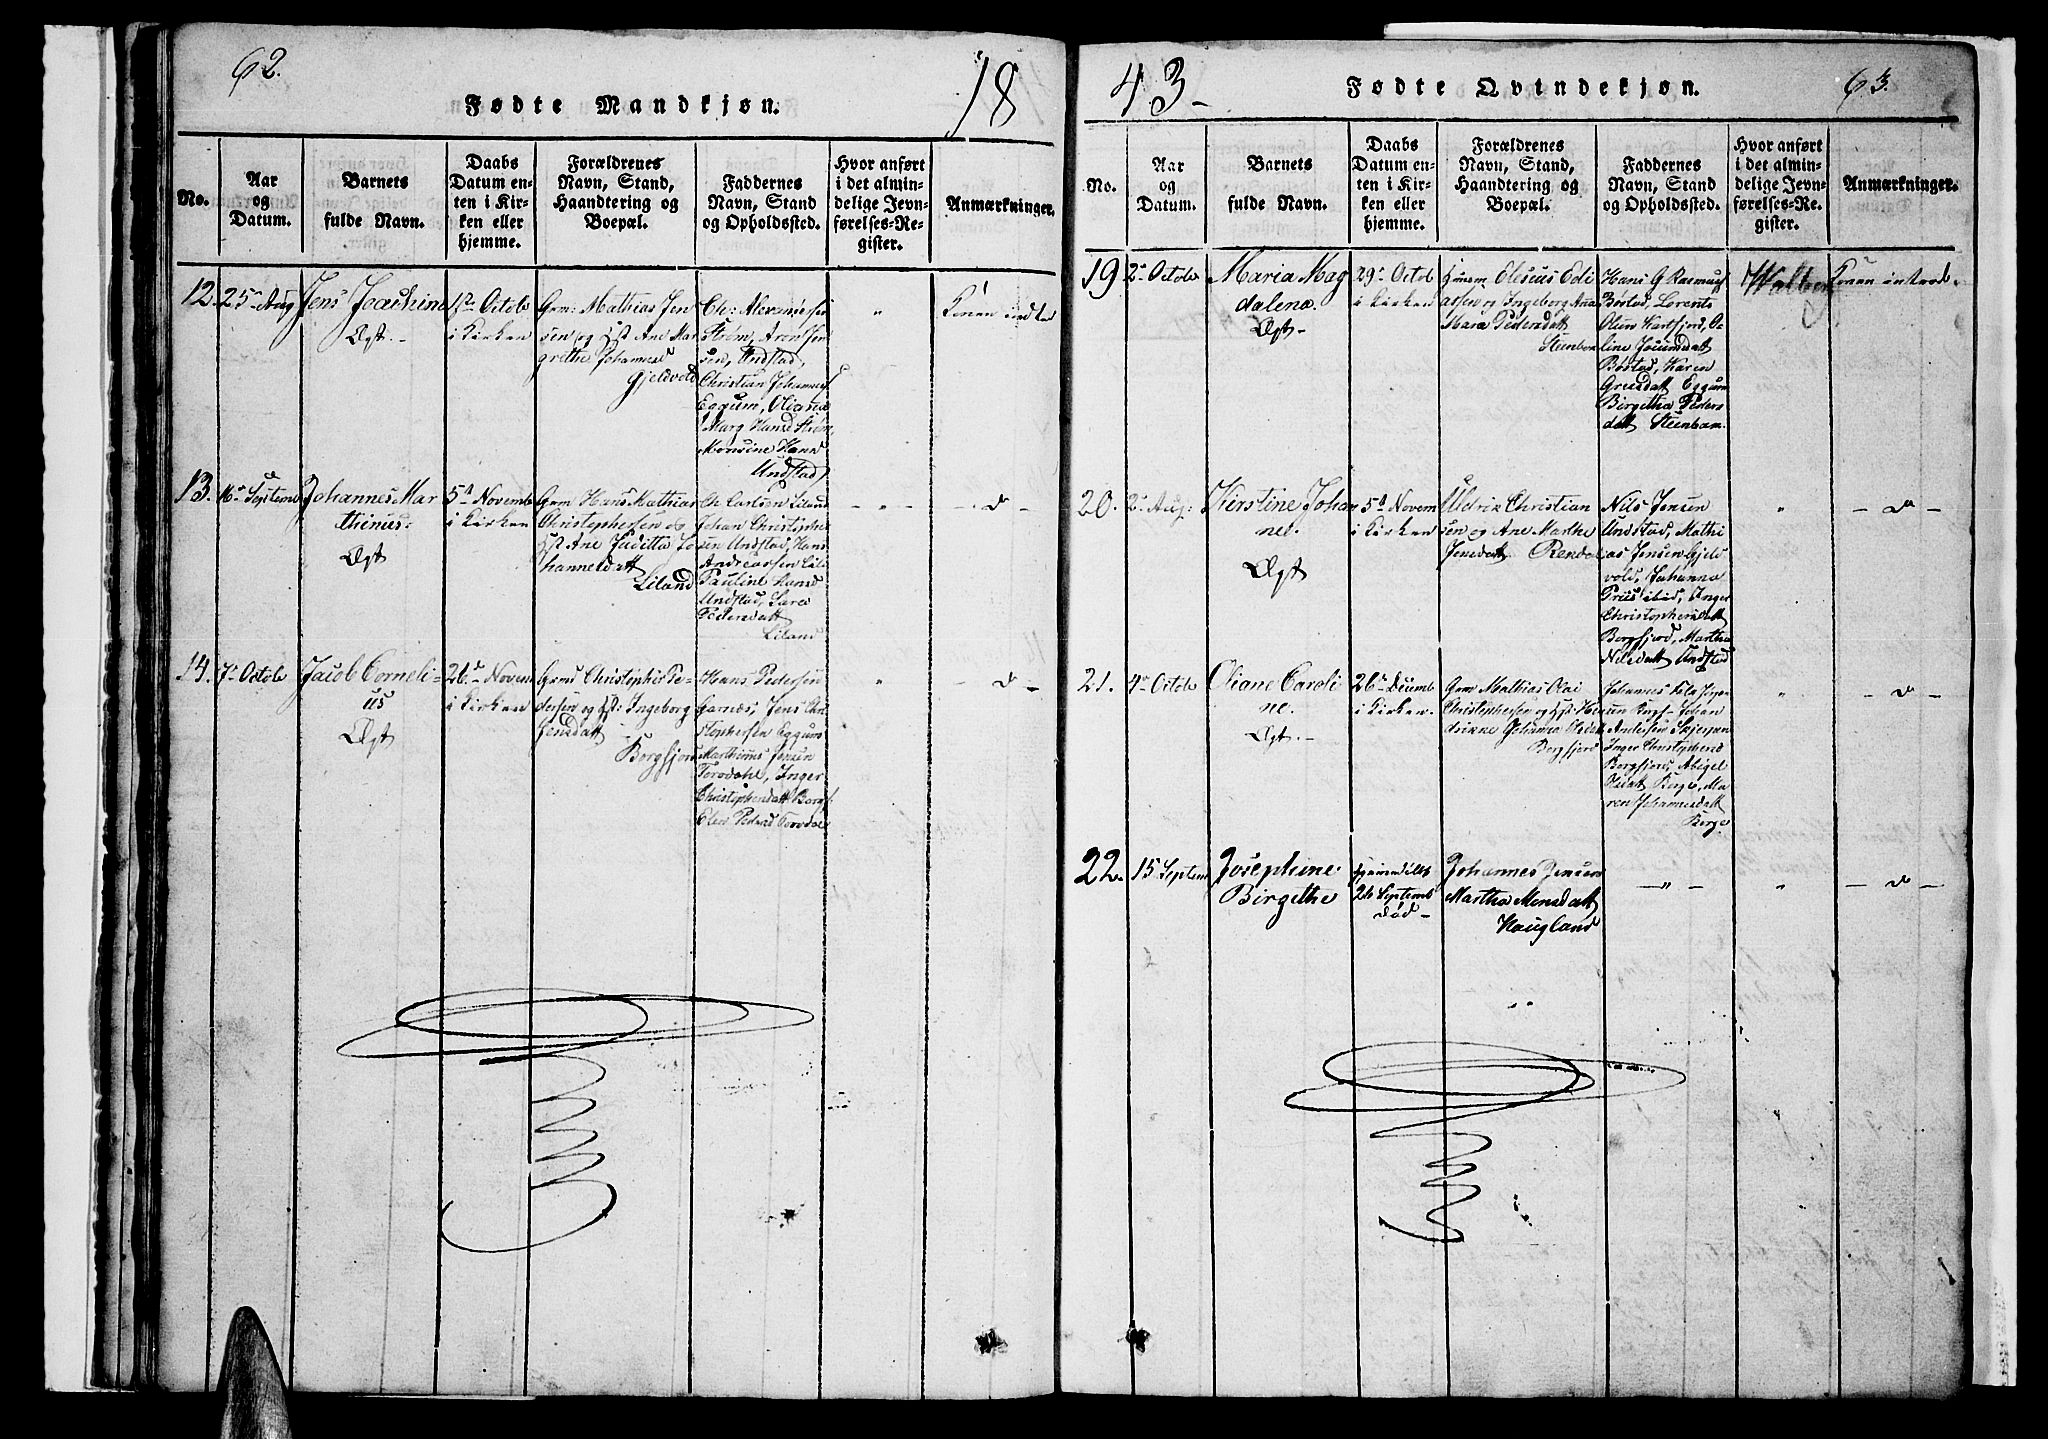 62.
Fødte Mandkjøn.
18
No.
Aar
og
Datum.
Barnets
fulde Navn.
Daabs
Datum en-
ten i Kir-
ken eller
hjemme.
Forældrenes
Navn, Stand,
Haandtering og
Boepæl.
Faddernes
Navn, Stand
og Opholdssted.
Hvor anført
i det almin-
delige Jevn-
førelses-Re-
gister.
Anmærkninger.
12.
25 Aug
Jens Joachim
Ægt.
1ste Octob
i Kirken
Grm: Mathias Jen
sen og Hst Ane Mar
grethe Johannesd
Gjeldvold
Ch: Alexandersen
Strøm, Aren Jen
sen, Undstad,
Christian Johannes
Eggum, Oliana
Marg Hansd Strøm
Monsine Hansd
Undstad
"
Konen indled
13.
16 Septemb
Johannes Mar
thinus.
Ægt
5d Novemb
i Kirken
Grm Hans Mathias
Christophersen og
Hst Ane Juditta Jo
hannesdatt
Liland
Ch Carlsen Liland
Johan Christophe
sen Undstad, Hans
Andreassen Lil
Pauline Hansd
Undstad, Sara
Pedersdatt
Liland
- " -
- d -
14.
7 Octob
Jacob Corneli-
us
Ægt
26 Novem
i Kirken
Grmd Christopher Pe-
dersen og Hst: Ingeborg
Jensdatt
Borgfjord
Hans Pedersen
Garnæs, Jens Chri
stophersen Eggum
Marthinus Jensen
Torvdahl, Inger
Christophersdatt Borgf
Elen Pedersd Torvdal
"
- d -
43-
Fødte Qvindekjøn.
63.
No.
Aar
og
Datum.
Barnets
fulde Navn.
Daabs
Datum en-
ten i Kir-
ken eller
hjemme.
Forældrenes
Navn, Stand,
Haandtering og
Boepæl.
Faddernes
Navn, Stand
og Opholdssted.
Hvor anført
i det almin-
delige Jevn-
førelses-Re-
gister.
Anmærkninger.
19
2 Octob
Maria Mag
dalena
Ægt-
29 Octob
i Kirken
Huusm Elesæus Edi
assen og Ingeborg Ana
Maria Pedersdatt
Steinbam
Hans G Rasmus
Bøstad, Lorents
Olsen Hartfjord, O-
line Joeumsdatt
Bøstad, Karen
Greisdatt Eggum
Birgitha Peders
datt Steinbam.
Konen introd.
20.
2 Aug.
Kirstine Johan
ne.
Ægt
5d Novem
i Kirken
Uldrik Christian
sen og Ane Marthe
Jensdatt Rendal
Nils Jensen
Undstad, Mathi
as Jensen Gjeld
vold, Johanna
Priis ibid, Inger
Christophersdatt
Borgfjord, Martha
Nilsdatt Undstad
"
- d -
21.
4 Octob
Oliane Caroli
ne.
Ægt.-
26 Decemb
i Kirken.
Grm Mathias Olai
Christophersen og Hst: Hen
drikke Johanna Olsdatt
Borgfjord
Borgf- Johan
Andersen
Inger Christophersd
Borgfjord, Abigel
Olsdatt Borge, Ma
ren Johannesdatt
Borge
"
- d -
22.
15 Septem
Josephine
Birgithe
hjemmedøbt
26 Septemb
død-
Johannes Jensen
Martha Monsdatt
Haugland
- " -
"
- d -